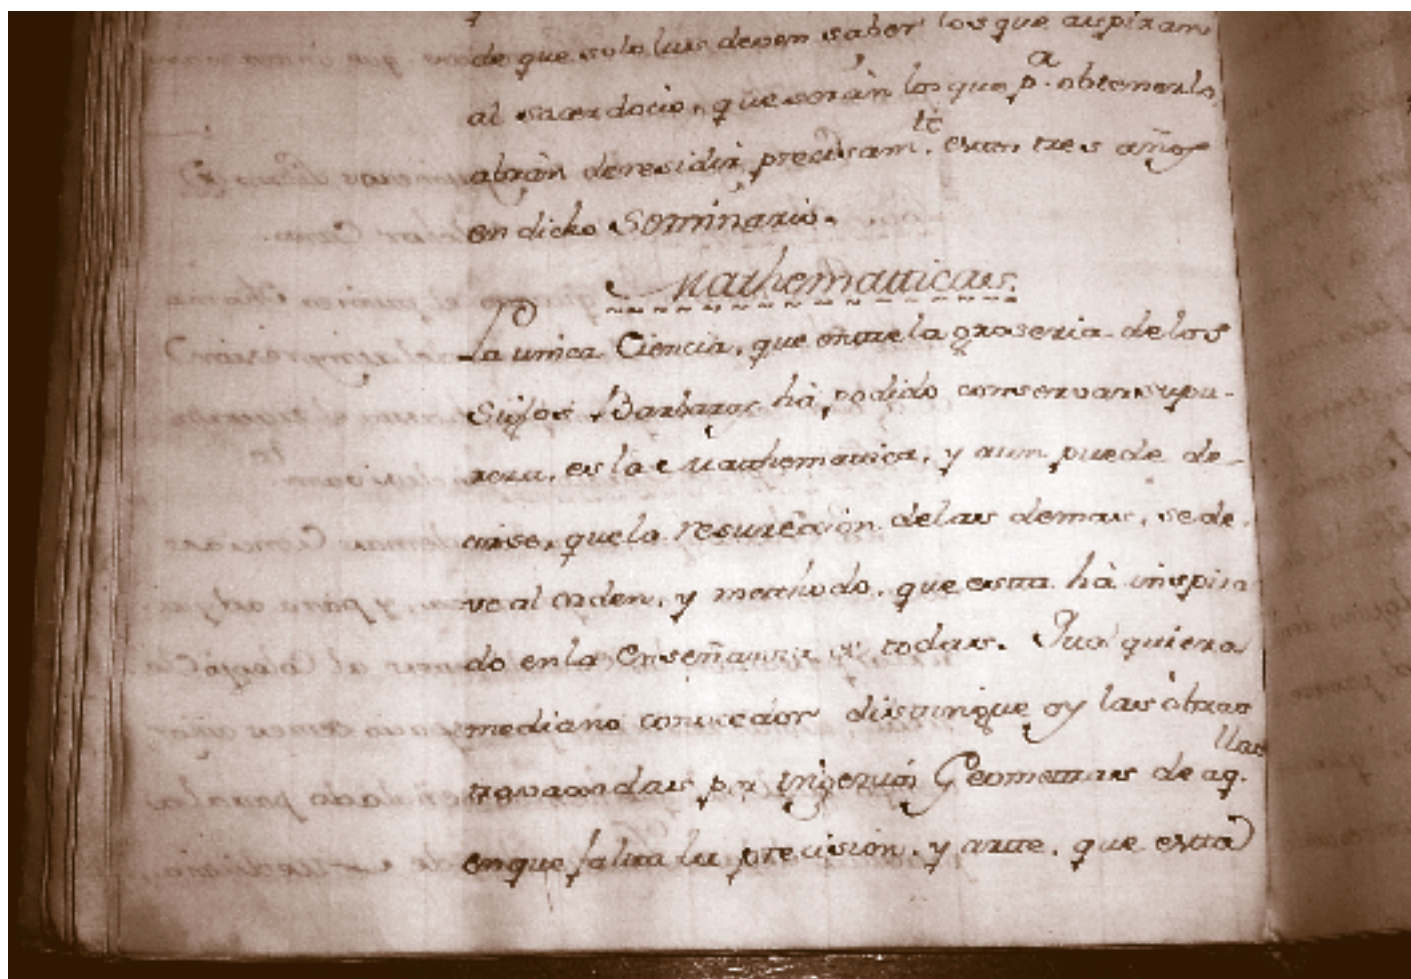 de que solo las deven saber los que aspiran
al sacerdocio, que serán los que p.a obtenerlo
abrán de residir precisam.te estos tres años
en dicho Seminario.
Mathematticas.
La unica Ciencia, que entre la groseria de los
Siglos Barbaros há podido conservar su pu-
reza, es la Mathematica, y aun puede de-
cirse, que la resurección de las demas, se de-
ve al orden, y methodo, que esta há inspira
do en la Enseñanza de todas. Qualquiera
mediano conocedor distingue oy las obras
travajadas p.r ingenios Geomettras de aq.llas
en que falta la precisión, y arte, que esttá